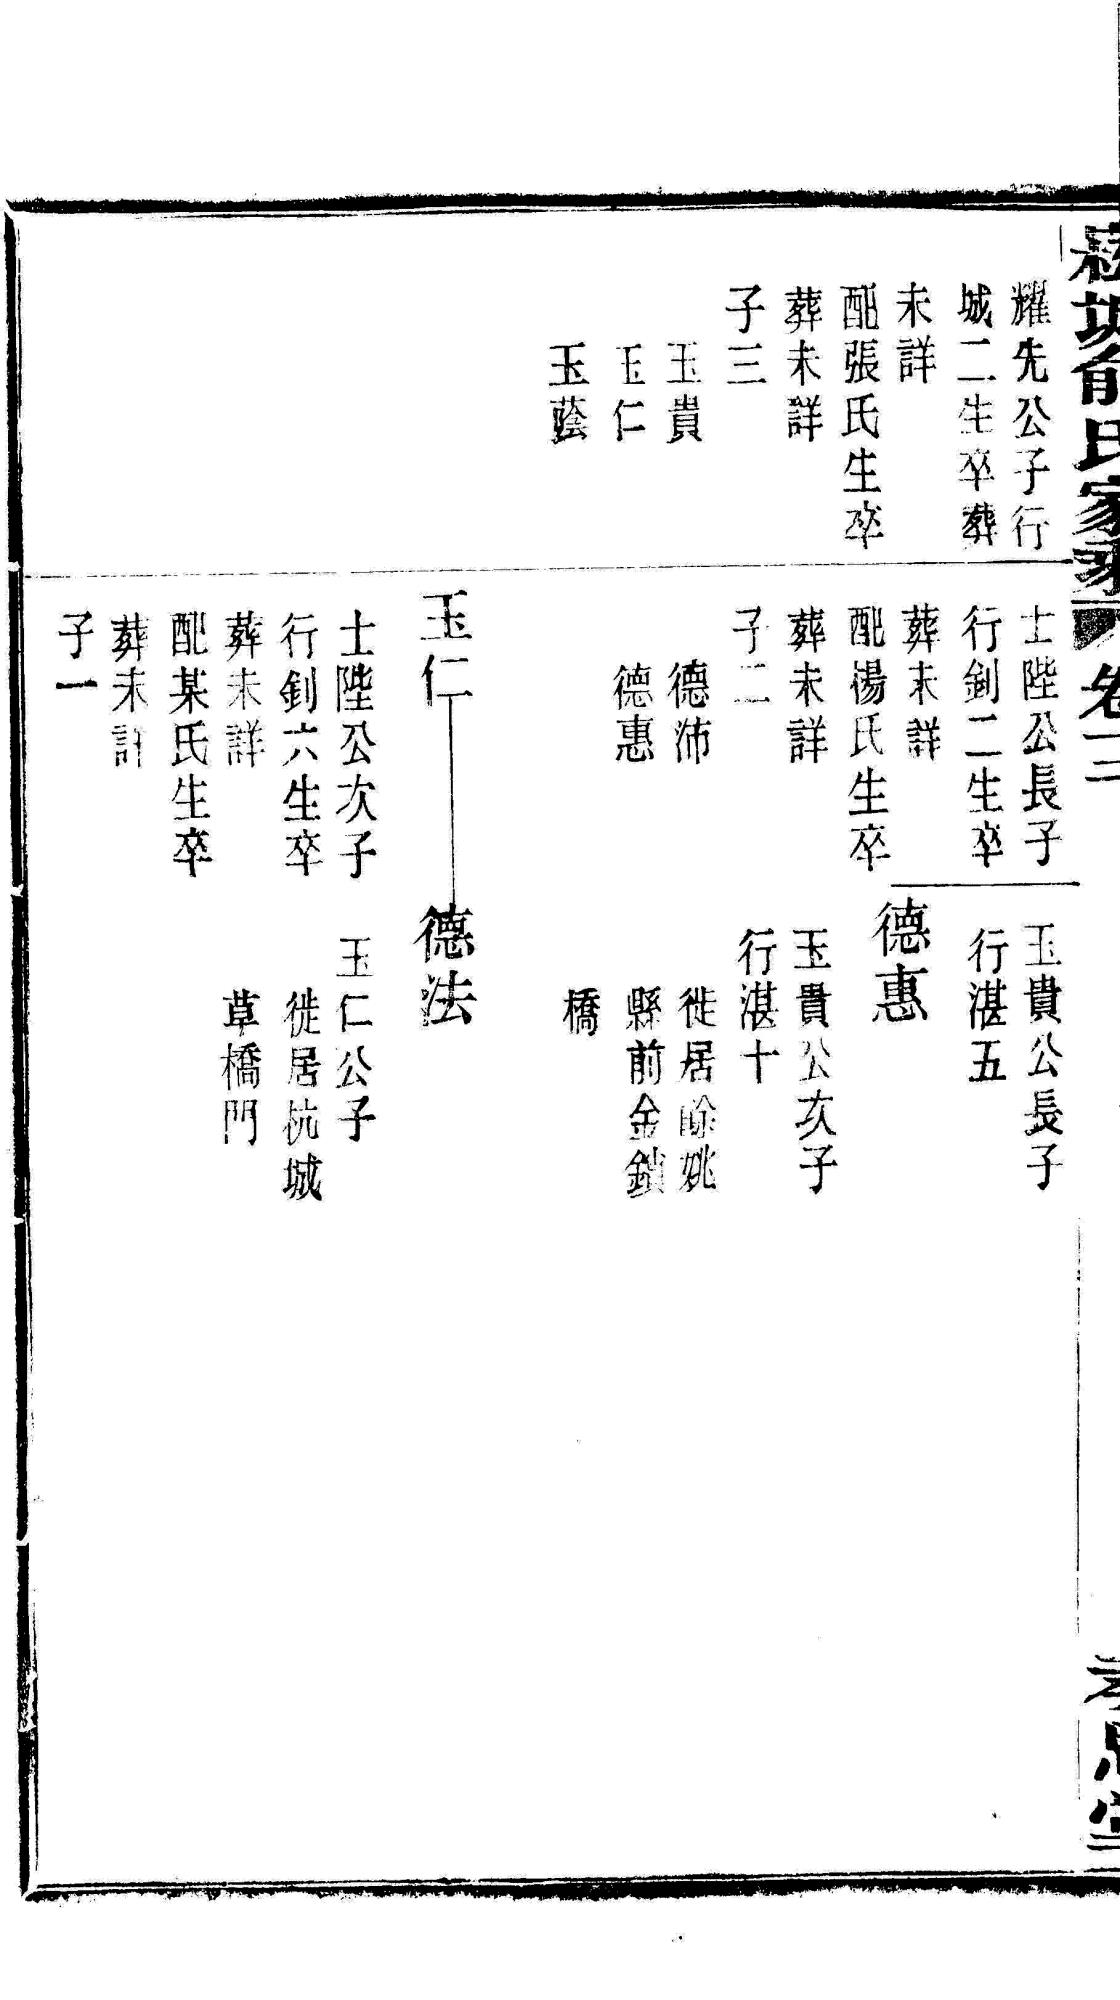 俞氏家乘 卷二
耀先公子行
城二生卒葬
未詳
配張氏生卒
葬未詳
子三
玉貴
玉仁
玉蔭
士陛公長子
行釗二生卒
葬未詳
配湯氏生卒
葬未詳
子二
德沛
德惠
玉仁
士陛公次子
行釗六生卒
葬未詳
配某氏生卒
葬未詳
子一
玉貴公長子
行湛五
德惠
玉貴公次子
行湛十
徙居餘姚
縣前金鎖
橋
德法
玉仁公子
徙居杭城
草橋門
孝思堂